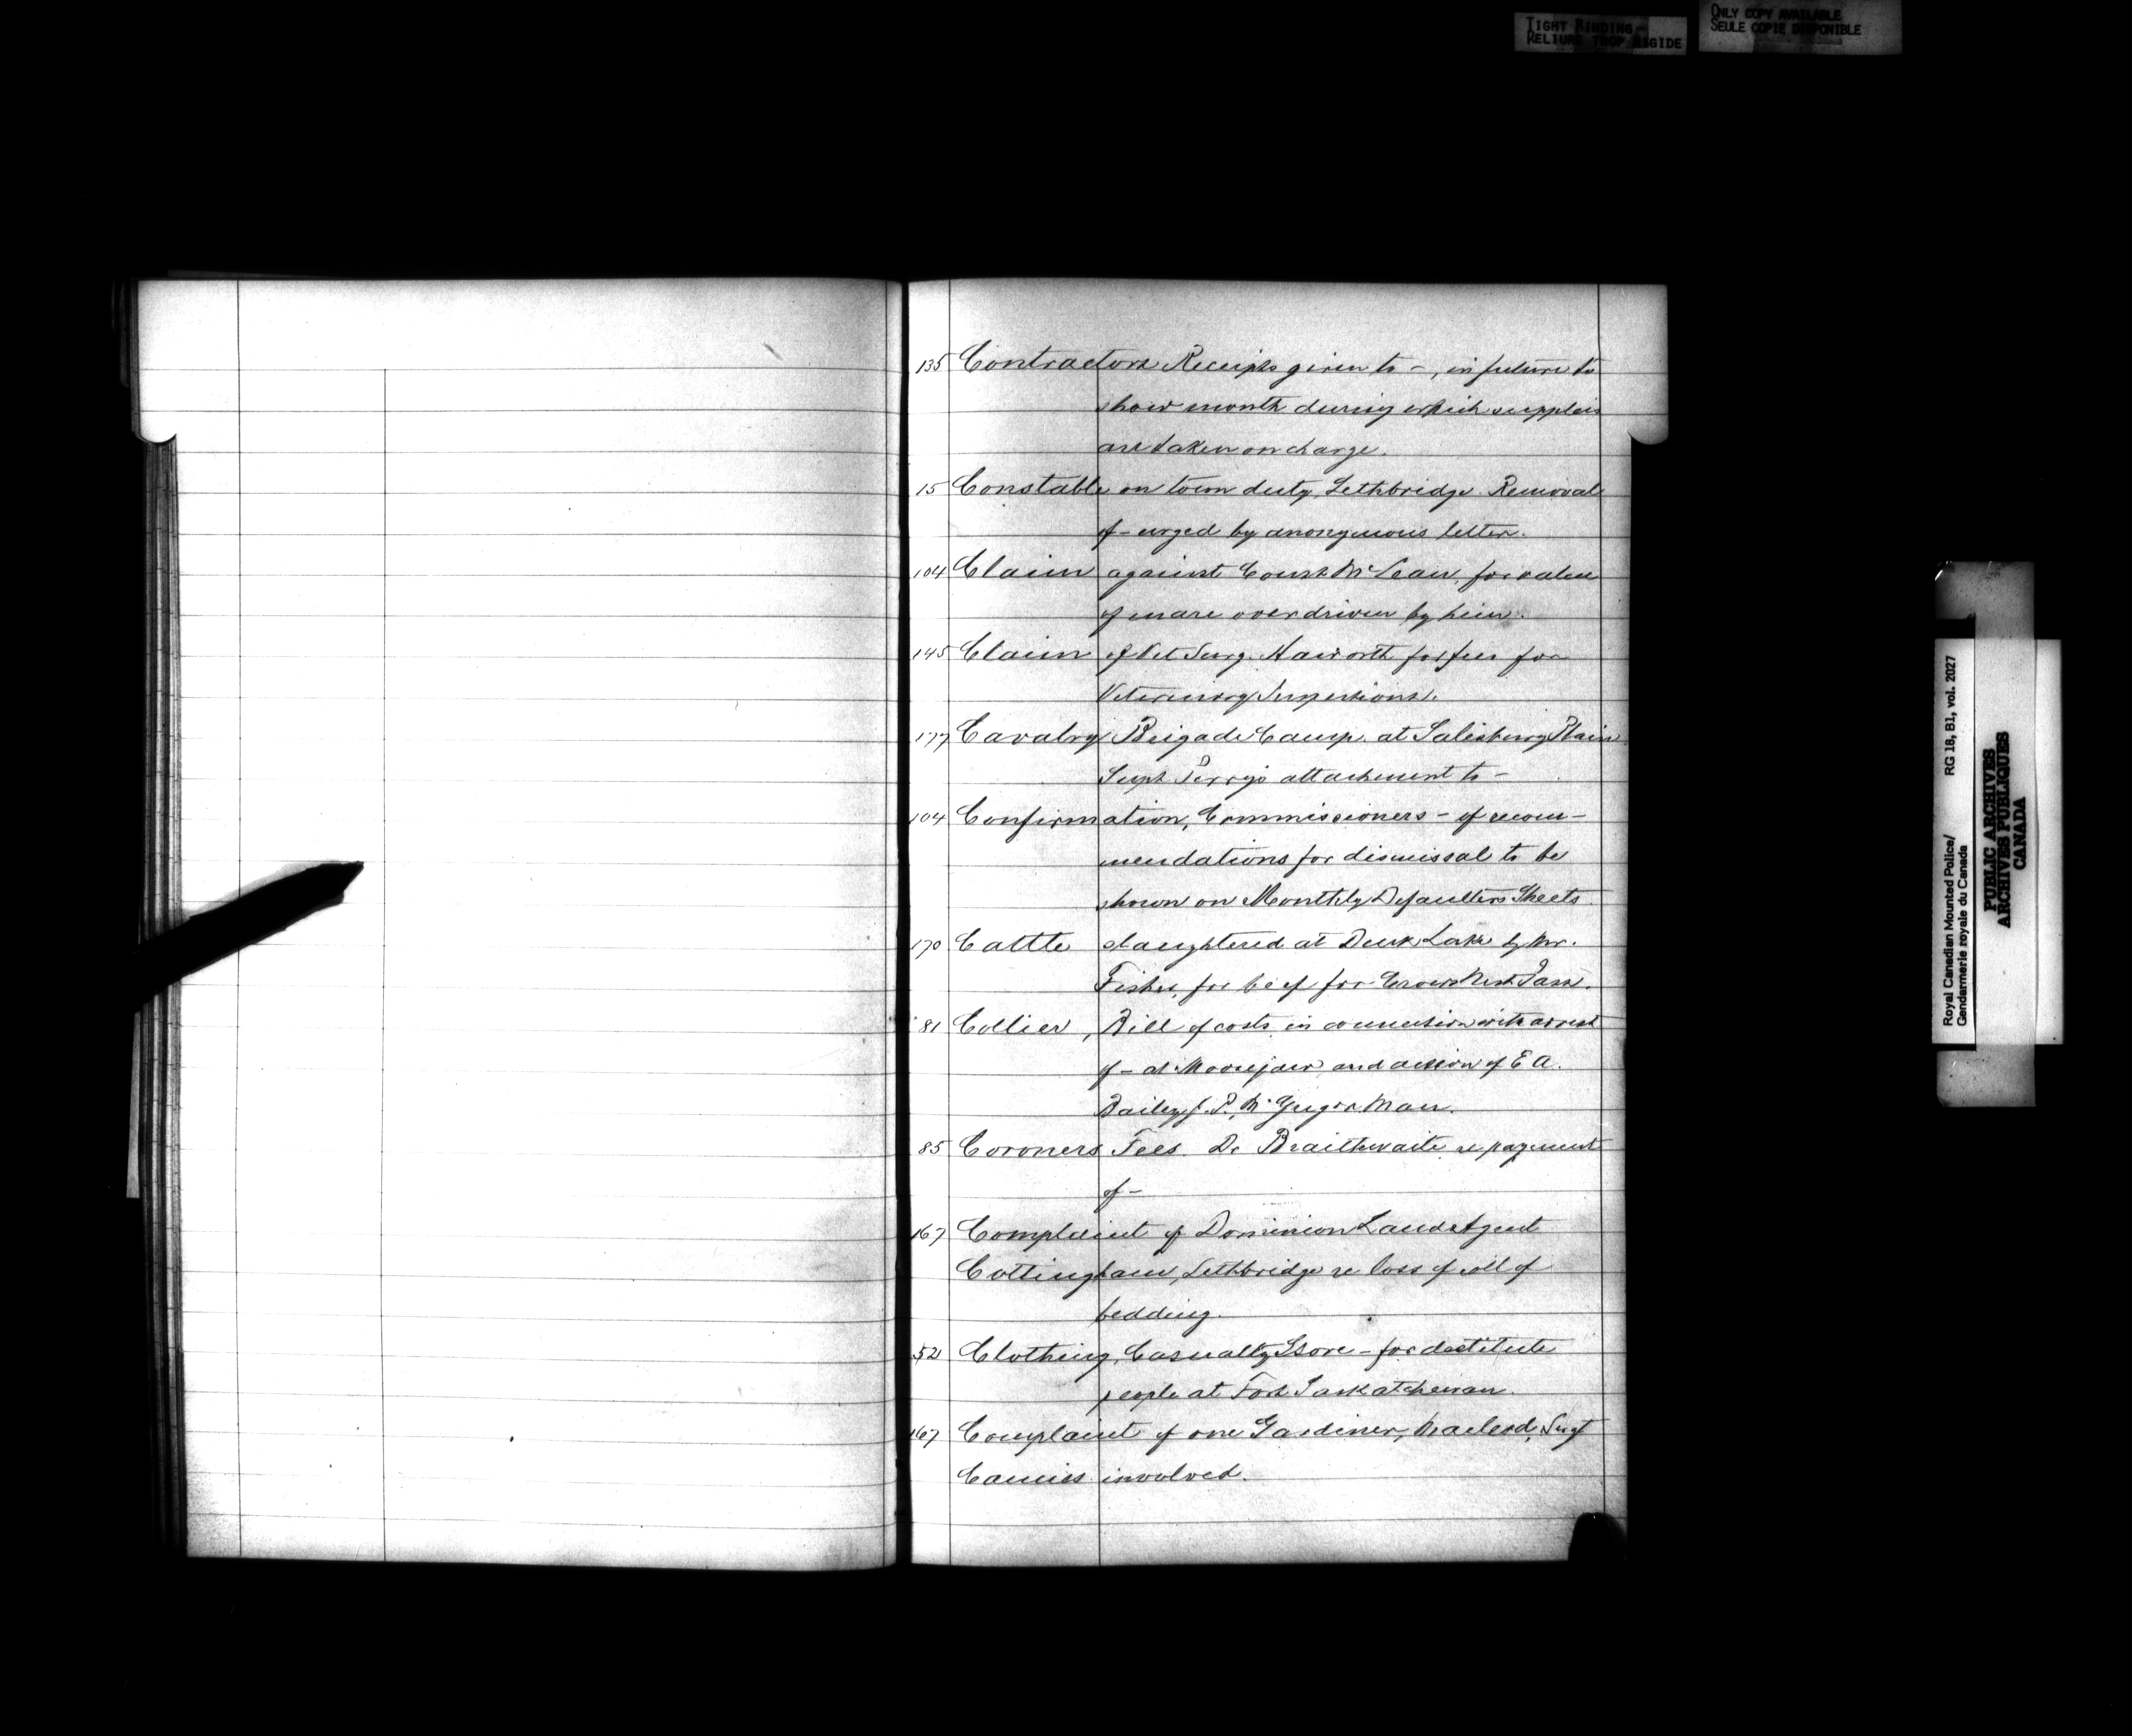 TIGHT BINDING -
RELIURE TROP RIGIDE
ONLY COPY AVAILABLE
SEULE COPIE DISPONIBLE
135 Contractors Receipts given to -, in future to
show month during which supplies
are taken on charge.
15 Constable on town duty Lethbridge. Removal
of - urged by anonymous letter.
104 Claim against Const McLean, for value
of mare overdriven by him.
145 Claim of Vet Surg. Haworth for fees for
Veterinary Inspections.
177 Cavalry Brigade Camp. at Salisbury Plain
Supt Perrys attachment to -
104 Confirmation, Commissioners - of recom-
mendations for dismissal to be
shown on Monthly Defaulters Sheets.
170 Cattle slaughtered at Duck Lake by Mr.
Fisher, for beef for Crows Nest Pass.
81 Collier, Bill of costs in connection with arrest
of - at Moosejaw and action of E A.
Bailey J. P. McGregor Man.
85 Coroners Fees. Dr Braithwaite re payment
of -
167 Complaint of Dominion Lands Agent
Cottingham, Lethbridge re loss of roll of
bedding.
52 Clothing, Casualty Store - for destitute
people at Fort Saskatchewan.
167 Complaint of one Gardiner, Macleod, Sergt
involved.
Royal Canadian Mounted Police/ RG 18, B1, vol. 2027
Gendarmerie royale du Canada
PUBLIC ARCHIVES
ARCHIVES PUBLIQUES
CANADA